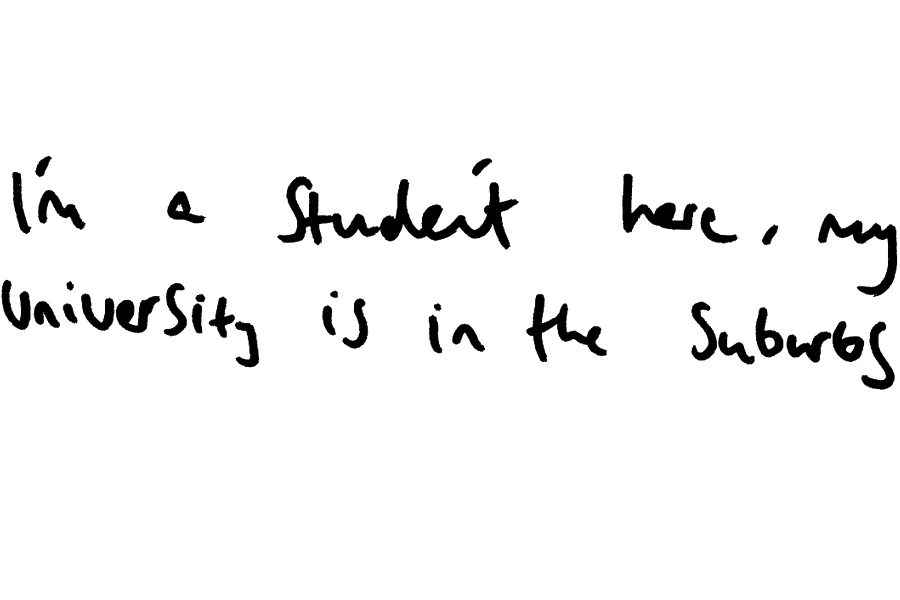 I'm a student here, my
university is in the suburbs